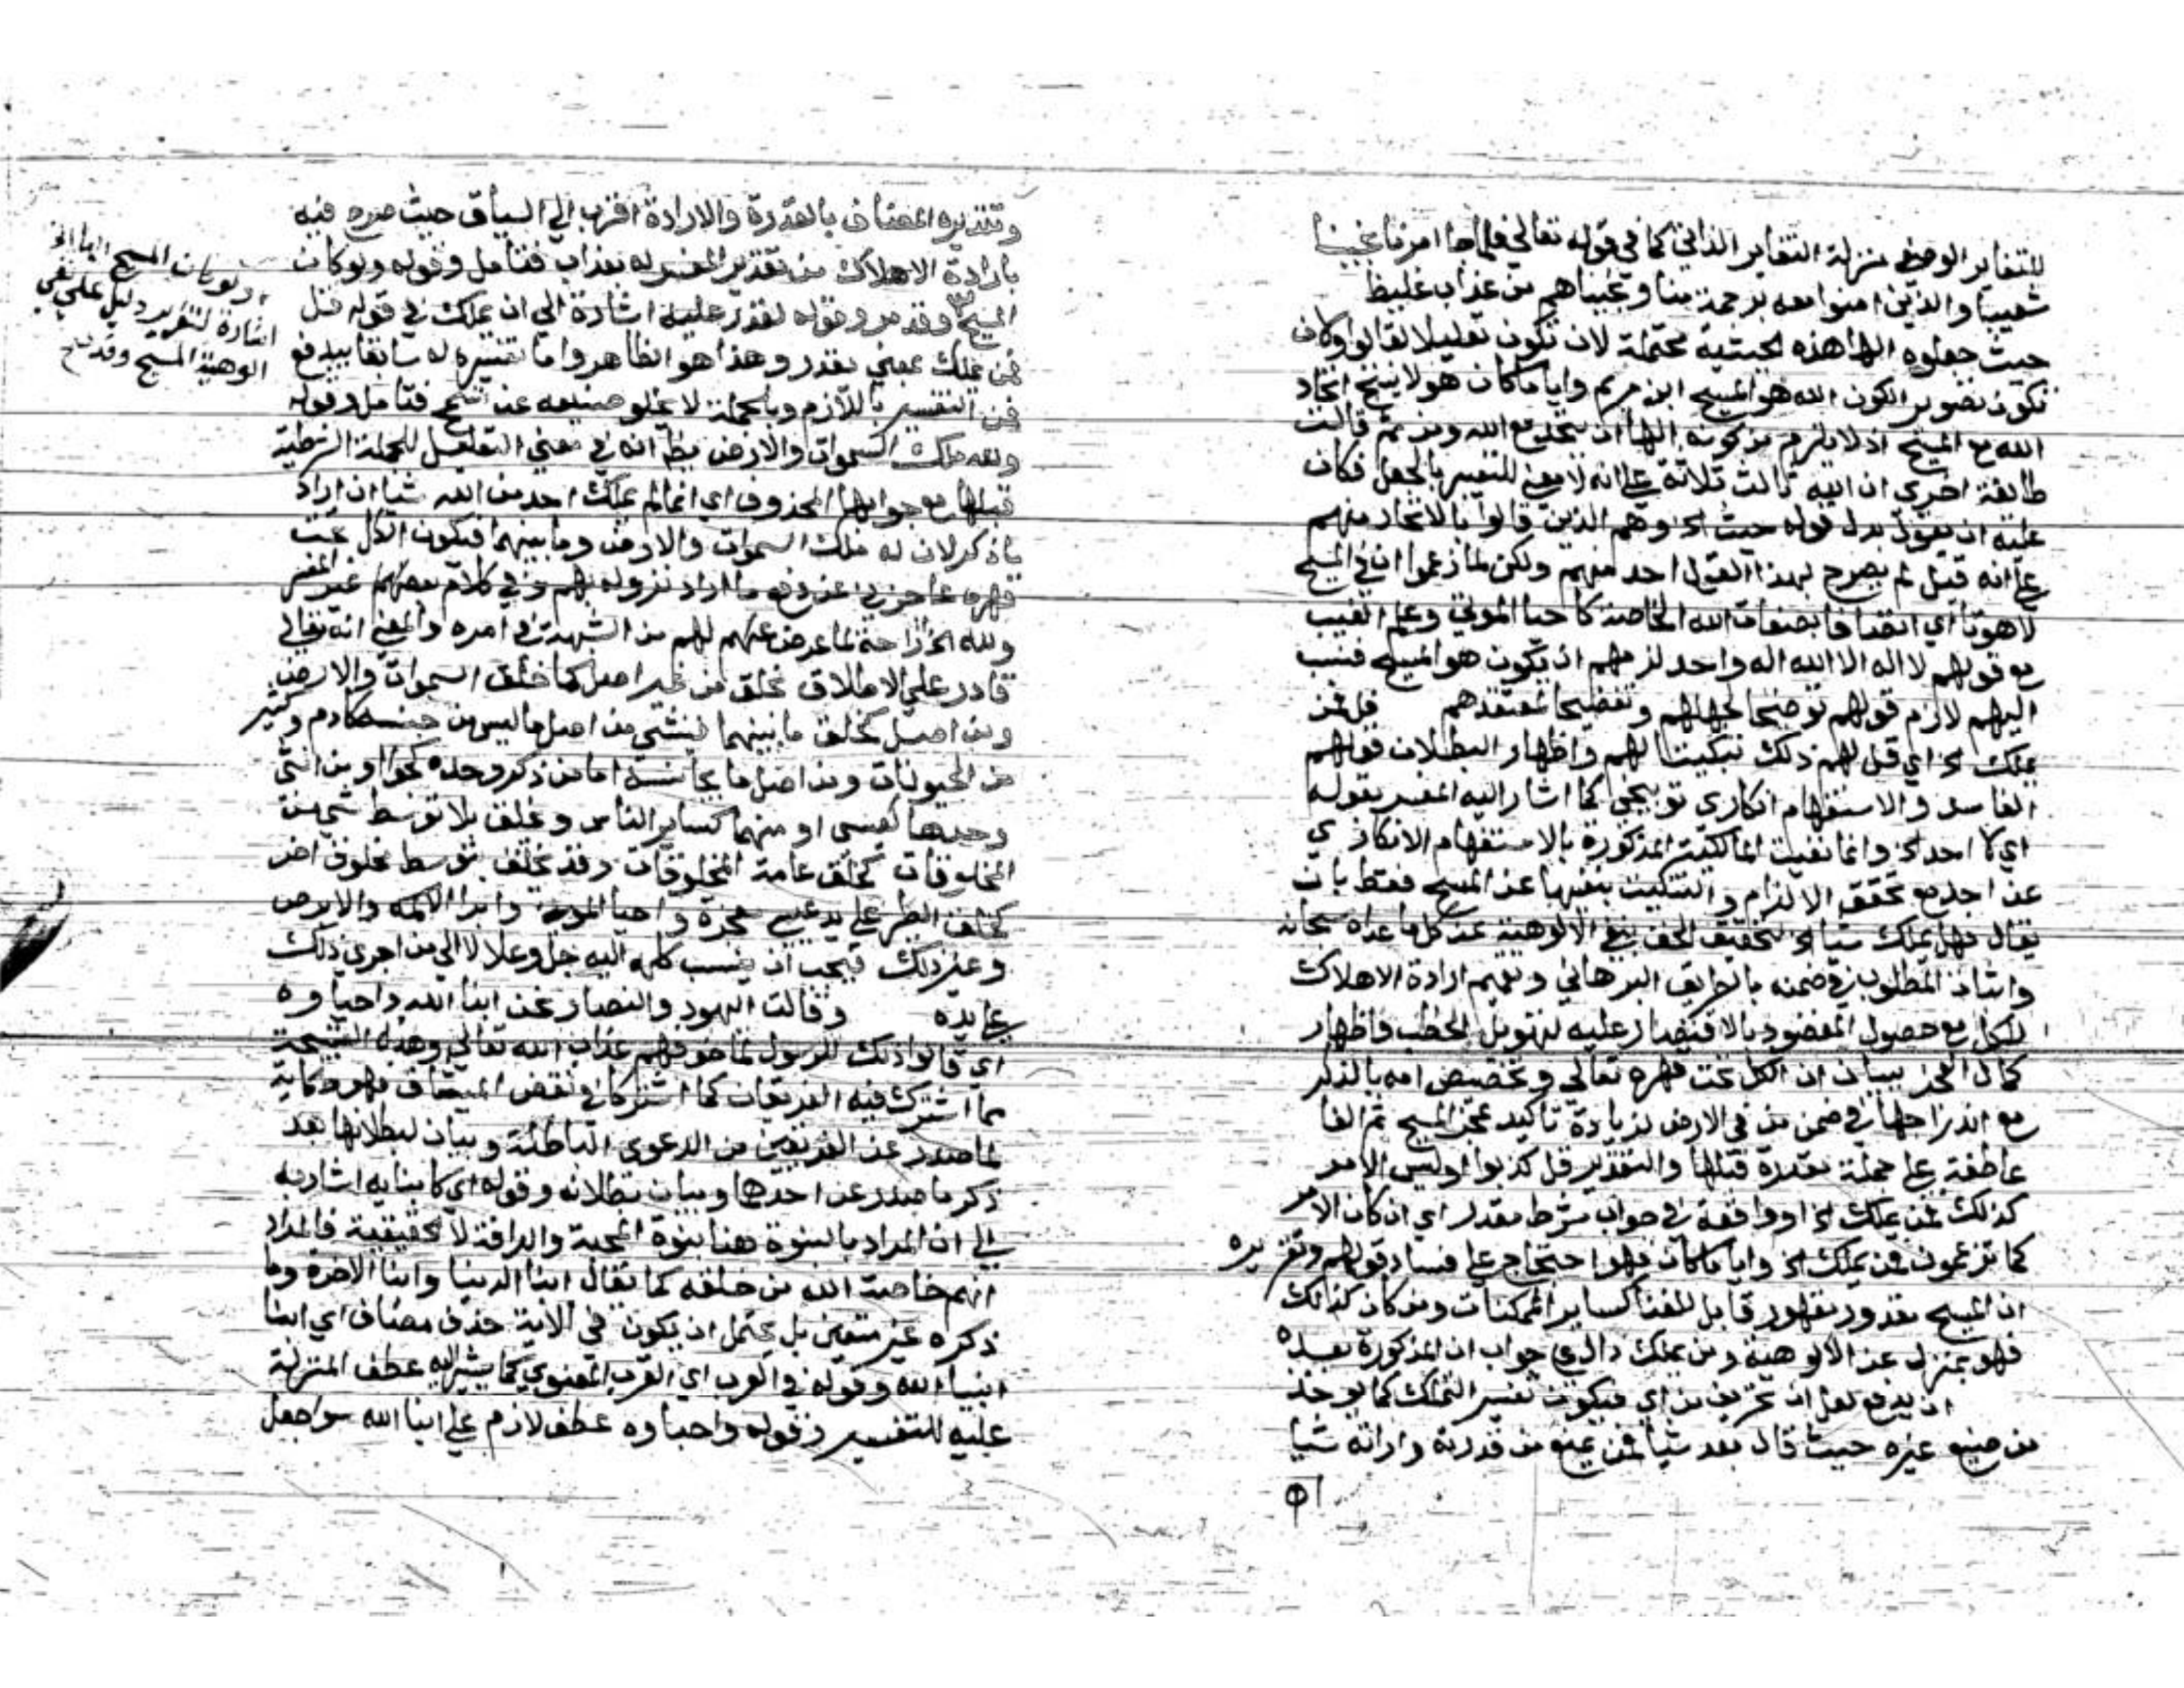 للتغاير الوصفي منزلة التغاير الذاتي كما في قوله تعالى فلما جا امرنا نجينا
شعيبا والذين امنوا معه برحمة منا ونجيناهم من عذاب غليظ
حيث جعلوه الها هذه الحيثية محتملة لان تكون تعليلا لقالوا وكان
تكون تصوير الكون الله هو المسيح ابن مريم وايا ماكان هو لا ينتج اتحاد
الله مع المسيح اذ لا يلزم من كونه الها ان يتحد مع الله ومن ثم قالت
طائفة اخرى ان الله ثالث ثلاثة على انه لا معنى للتعبير بالجعل فكان
عليه ان يقول بدل قوله حيث الخ وهم الذين قالوا بالاتحاد منهم
على انه قيل لم يصرح بهذا القول احد منهم ولكن لما زعموا ان في المسيح
لاهوتا اي اتصافا بصفات الله الخاصة كاحيا الموتى وعلم الغيب
مع قولهم لا اله الا الله اله واحد لزمهم ان يكون هو المسيح فنسب
اليهم لازم قولهم توضيحا لجهلهم وتفضيحا لمعتقدهم قل فمن
يملك الخ اي قل لهم ذلك تبكيتا لهم واظهار البطلان قولهم
الفاسد والاستفهام انكاري توبيخي كما اشار اليه المفسر بقوله
اي لا احد الخ وانما نفيت المالكية المذكورة بالاستفهام الانكاري
عن احد مع تحقق الالزام والتبكيت بنفيها عن المسيح فقط بان
يقال فهل يملك شيا الخ لتحقيق الحق بنفي الالوهية عن كل ما عداه سبحانه
واثبات المطلوب في ضمنه بالطريق البرهاني وتعميم ارادة الاهلاك
للكل مع حصول المقصود بالاقتصار عليه لتهويل الخطب واظهار
كمال العجز ببيان ان الكل تحت قهره تعالى وتخصيص امه بالذكر
مع اندراجها في ضمن من في الارض لزيادة تاكيد عجز المسيح ثم الفا
عاطفة على جملة مقدرة قبلها والتقدير قل كذبوا او ليس الامر
كذلك فمن يملك الخ او واقعة في جواب شرط مقدر اي ان كان الامر
كما تزعمون فمن يملك الخ وايا ماكان فهو احتجاج على فساد قولهم وتقريره
ان المسيح مقدور مقهور قابل للفنا كساير الممكنات ومن كان كذلك
فهو بمعزل عن الالوهية ومن يملك دال على جواب ان المذكورة بعده
ان يدفع لعل ان تحريف من اي فيكون تفسير التملك كما يوخذ
من صنيع غيره حيث قال بعد شيا فمن يمنع من قدرته وارادته شيا
وتقديره المضاف بالقدرة والارادة اقرب الى السياق حيث صرح فيه
بارادة الاهلاك من تقدير المفسر له بعذاب فتامل وقوله ولو كان
المسيح وقد مر وقوله لقدر عليه اشارة الى ان يملك في قوله قل
فمن يملك بمعنى يقدر وهذا هو الظاهر واما تفسيره له سابقا بيدفع
فمن التفسير باللازم وبالجملة لا يخلو صنيعه عن تسمح فتامل وقوله
ولله ملك السموات والارض يظ انه في معنى التعليل للجملة الشرطية
قبلها مع جوابها المحذوف اي انما لم يملك احد من الله شيا ان اراد
ما ذكر لان له ملك السموات والارض وما بينهما فيكون الكل تحت
قهره عاجز عن دفع ما اراد نزوله بهم وفي كلام بعضهم غير المفسر
ولله الخ ازاحة لما عرض عنهم لهم من الشبهة في امره والمعنى انه تعالى
قادر على الاطلاق يخلق من غير اصل كما خلق السموات والارض
ومن اصل كخلق ما بينهما فينشي من اصل ما ليس من جنسه كادم وكثير
من الحيوانات ومن اصل ما يجانسه اما من ذكر وحده كحوا او من انثى
وحدها كعيسى او منهما كساير الناس ويخلق بلا توسط شي من
المخلوقات كخلق عامة المخلوقات وقد يخلق بتوسط مخلوق اخر
كخلق الطير على يد عيسى معجزة واحيا الموتى وابرا الاكمه والابرص
وغير ذلك فيجب ان ينسب كله اليه جل وعلا لا الى من اجرى ذلك
على يده وقالت اليهود والنصار نحن ابنا الله واحباوه
اي قالوا ذلك للرسول لما خوفهم عذاب الله تعالى وهذه القبيحة
مما اشترك فيه الفريقان كما اشتركا في نقض الميثاق فهو حكاية
لما صدر عن الفريقين من الدعوى الباطلة وبيان لبطلانها بعد
ذكر ما صدر عن احدها وبيان بطلانه وقوله اي كابنايه اشار به
الى ان المراد بالبنوة هنا بنوة المحبة والرافة لا الحقيقية فالمراد
انهم خاصة الله من خلقه كما يقال ابنا الدينا وابنا الاخرة وما
ذكره غير متعين بل يحتمل ان يكون في الاية حذف مضاف اي ابنا
انبيا الله وقوله في القرب اي القرب المعنوي كما يشير اليه عطف المنزلة
عليه للتفسير وقوله واحباوه عطف لازم على ابنا الله سواجعل
ولو كان المسيح الها الخ
اشارة لتقرير دليل على نفي
الوهية المسيح وقد